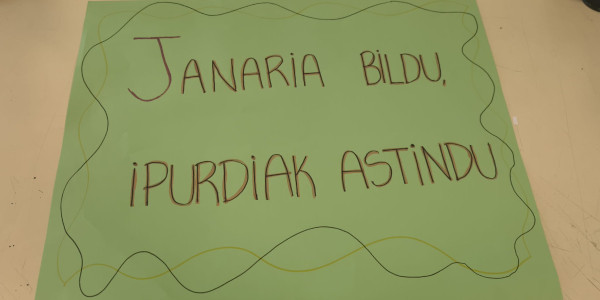 JANARIA BILDU,
iPURDIAK ASTINDU